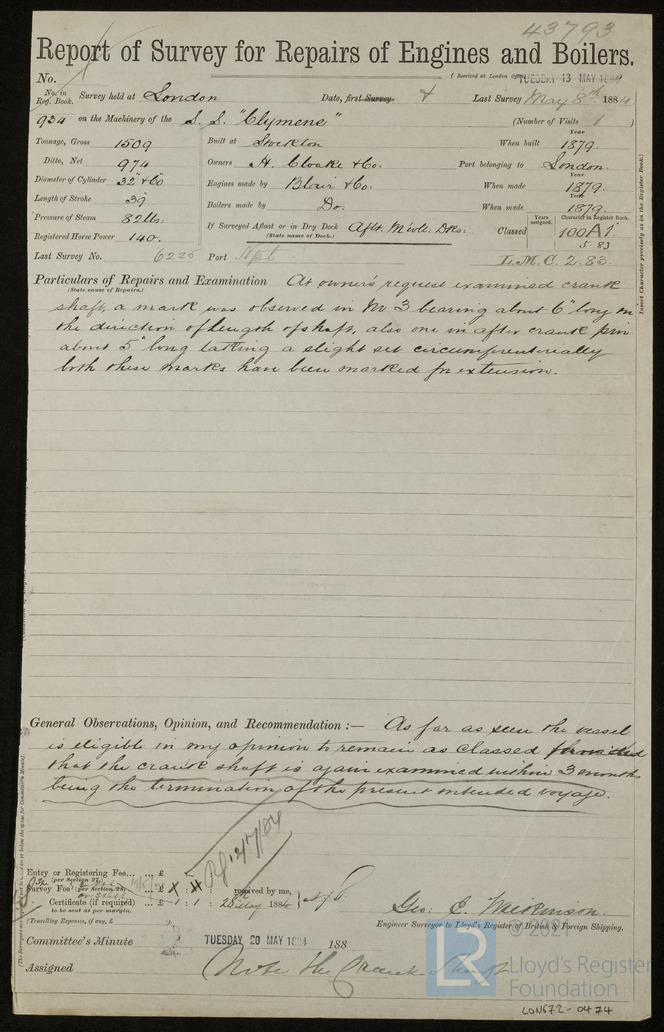 43793
Report of Survey for Repairs of Engines and Boilers.
No.
(Received at London Office TUESDAY 13 MAY 1884
No. in Reg. Book. Survey held at London Date, first Survey Last Survey May 8th 1884
934 on the Machinery of the S. S. "Clymene" (Number of Visits 1)
Tonnage, Gross 1509 Built at Stockton When built Year 1879.
Ditto, Net 974 Owners H. Cloake & Co. Port belonging to London
Diameter of Cylinder 32" & 60 Engines made by Blair & Co. When made Year 1879.
Length of Stroke 39 Boilers made by Do. When made Year 1879.
Pressure of Steam 82 lbs. If Surveyed Afloat or in Dry Dock Aflt. Mwll. Dks. Classed Years assigned. Character in Register Book. 100A1.
(State name of Dock.) 5 83
Registered Horse Power 140.
Last Survey No. 6226 Port Npt L.M.C. 2.83
Particulars of Repairs and Examination At owner's request examined crank
(State cause of Repairs.)
shaft, a mark was observed in No 3 bearing about 6" long in
the direction of length of shaft, also one in after crank pin
about 5" long taking a slight set circumferencially
both these marks have been marked for extension.
General Observations, Opinion, and Recommendation :— As far as seen the vessel
is eligible in my opinion to remain as classed provided
that the crank shaft is again examined within 3 months
being the termination of the present intended voyage.
Entry or Registering Fee... ... £
(per Section 27)
Survey Fee (per Section 28) £
received by me,
Certificate (if required) ... £ 1 : 1 : 28th May 1884
to be sent as per margin.
(Travelling Expenses, if any, £
Geo: E Mackinson
Engineer Surveyor to Lloyd's Register of British & Foreign Shipping.
Committee's Minute TUESDAY 20 MAY 1884 188
Assigned Note the Crank Shaft
Insert Character precisely as in the Register Book.
© 2021
LR
Lloyd's Register
Foundation
LON672-0474